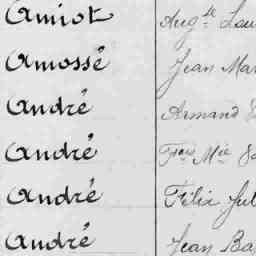 Amiot Aug.te Lou
Amossé Jean Mar
André Armand
André F.çois M.ie
André Félix Jul
André Jean Ba